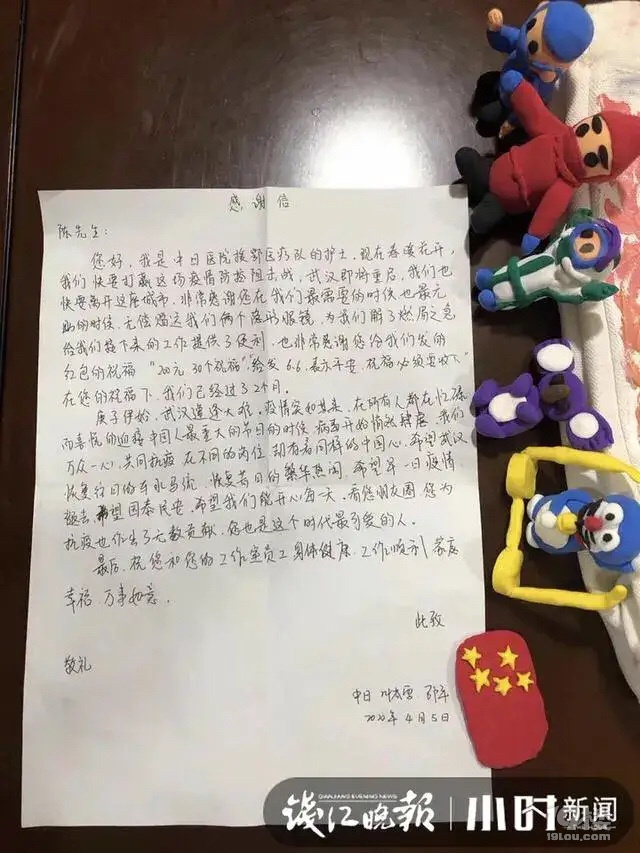 感谢信
陈先生：
您好，我是中日医院援鄂医疗队的护士，现在春暖花开，
我们快要打赢这场疫情防控阻击战，武汉即将重启，我们也
快要离开这座城市，非常感谢您在我们最需要的时候也最无
助的时候，无偿赠送我们俩个隐形眼镜，为我们解了燃眉之急
给我们接下来的工作提供了便利，也非常感谢您给我们发的
红包的祝福“200元 30个祝福”，给发6.6，表示平安，祝福必须要收下”
在您的祝福下，我们已经过了2个月。
庚子伊始，武汉遭逢大难，疫情突如其来，在所有人都在忙碌
而喜悦的迎接中国人最重大的节日的时候，病毒开始悄然肆虐，我们
万众一心，共同抗疫，在不同的岗位，却有着同样的中国心，希望武汉
恢复往日的车水马流，恢复昔日的繁华热闹，希望早一日疫情
被击，希望国泰民安，希望我们能开心每一天，看您朋友圈，您为
抗疫也作出了无数贡献，您也是这个时代最可爱的人。
最后，祝您和您的工作室员工身体健康，工作顺利，家庭
幸福，万事如意。
此致
敬礼
中日
2020年4月5日
QIANJIANG EVENING NEWS
钱江晚报 小时新闻
19lou.com